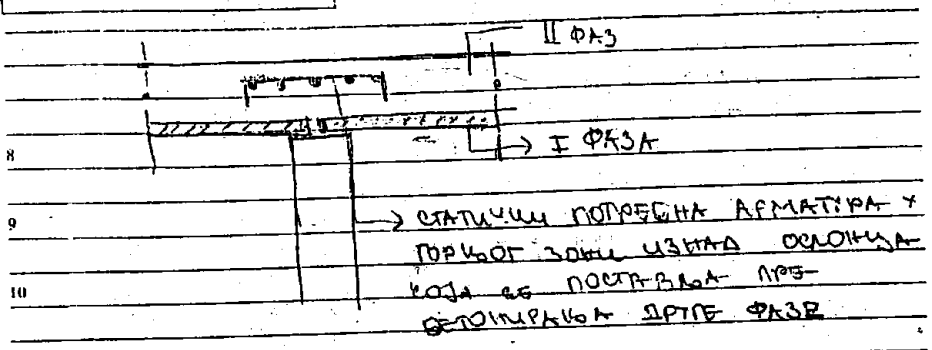 II ФАЗ
I ФАЗА
8
9
СТАТИЧКИ ПОТРЕБНА АРМАТУРА У
ГОРЊОЈ ЗОНИ ИЗНАД ОСЛОНЦА
10
КОЈА СЕ ПОСТАВЉА ПРЕ
БЕТОНИРАЊА ДРУГЕ ФАЗЕ